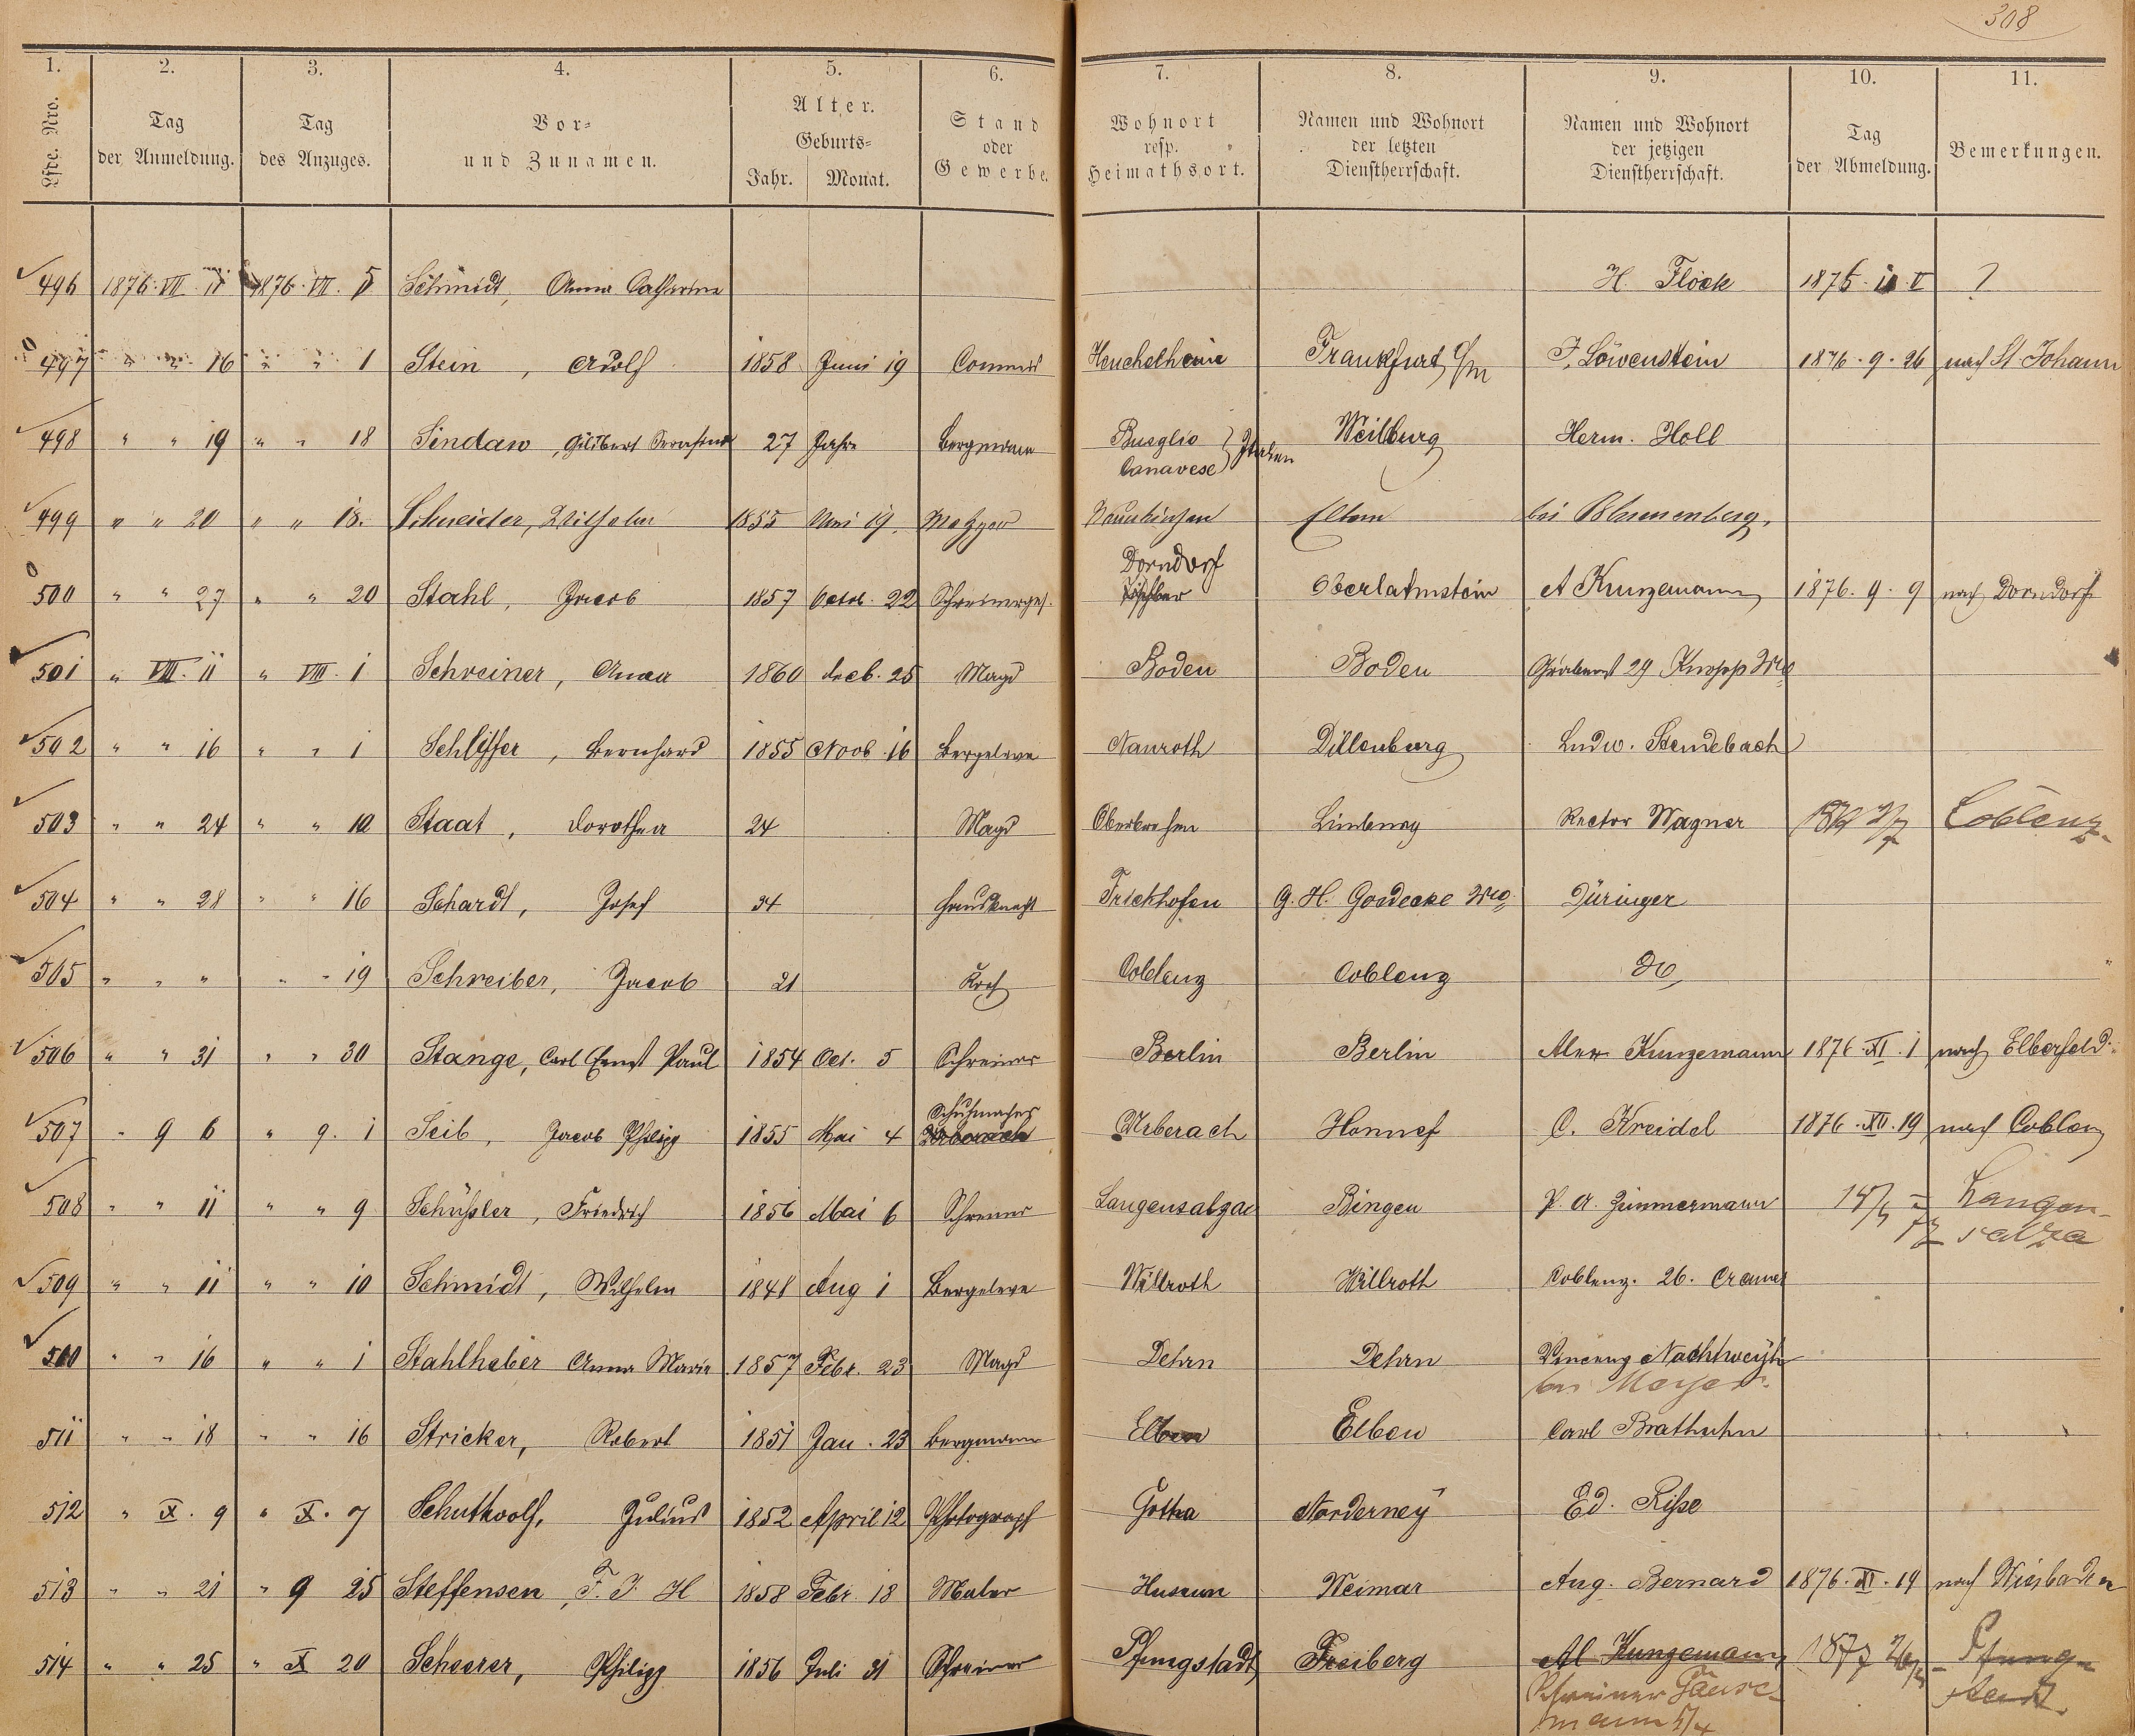 308
1. 2. 3. 4. 5. 6. 7. 8. 9. 10. 11.
Lfde. Nro. Tag der Anmeldung. Tag des Anzuges. Vor- und Zunamen. Alter. Geburts- Jahr. Monat. Stand oder Gewerbe. Wohnort resp. Heimathsort. Namen und Wohnort der letzten Dienstherrschaft. Namen und Wohnort der jetzigen Dienstherrschaft. Tag der Abmeldung. Bemerkungen.
496 1876. VII 11 1876. VII. 5 Schmidt, Anna Catharina H. Flöck ?
497 " " 16 " " 1 Stein, Adolf 1858 Juni 19 Commis Heuchelheim Frankfurt a/m J. Löwenstein 1876. 9. 26 nach St. Johann
498 " " 19 " " 18 Sindaw, Gilibert 27 Jahre Bergmann Busglio Canavese } Italien Weilburg Herm. Holl
499 " " 20 " " 18. Schneider, Wilhelm 1855 Mai 19. Metzger Neunkirchen Eltern bei Blumenberg.
500 " " 27 " " 20 Stahl, Jacob 1857 Octob. 22 Schreinerges. Dorndorf Oberlahnstein A Kunzemann 1876. 9. 9 nach Dorndorf
501 " VIII. 11 " VIII. 1 Schreiner, Anna 1860 Decb. 25 Magd Boden Boden Grabenst 29 Knopp Wwe
502 " " 16 " " 1 Schlöffer, Bernhard 1855 Novb. 16 Bergeleve Nauroth Dillenburg Ludw. Stendebach
503 " " 24 " " 10 Staat, Dorothea 24 Magd Oberbrechen Limburg Rector Wagner Coblenz
504 " " 28 " " 16 Schardt, Josef 34 Hausknecht Frickhofen G. H. Goedecke Wwe Düringer
505 " " " " " 19 Schreiber, Jacob 21 Koch Coblenz Coblenz do
506 " " 31 " " 30 Stange, Carl Ernst Paul 1854 Oct. 5 Schreiner Berlin Berlin Alex Kunzemann 1876. XI. 1 nach Elberfeld
507 " 9 6 " 9. 1 Seib, Jacob Philipp 1855 Mai 4 Schuhmacher Urberach Urberach Honnef C. Kreidel 1876. XII. 19 nach Coblenz
508 " " 11 " " 9 Schüssler, Friedrich 1856 Mai 6 Schreiner Langensalza Bingen P. A. Zimmermann 77 Langensalza
509 " " 11 " " 10 Schmidt, Wilhelm 1848 Aug 1 Bergeleve Willroth Willroth Coblenz. 26. Cramer
510 " " 16 " " 1 Stahlheber Anna Maria 1857 Febr. 23 Magd Dehrn Dehrn Vincenz Nachtweyh
bei Meyer
511 " " 18 " " 16 Stricker, Robert 1851 Jan. 23 Bergmann Elben Elben Carl Brathuhn
512 " X. 9 " X. 7 Schuthoolf, Julius 1852 April 12 Photograph Gotha Norderney Ed. Risse
513 " " 21 " 9 25 Steffensen, F. J. H 1858 Febr. 18 Maler Husum Weimar Aug. Bernard 1876. XI. 19 nach Wiesbaden
514 " " 25 " X 20 Scheerer, Philipp 1856 Juli 31 Schreiner Pfungstadt Freiberg Al Kunzemann 1877 Pfungstadt
Schreiner